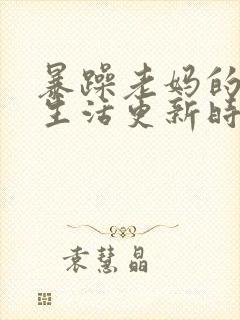 暴躁老妈的
生活更新时
袁慧晶